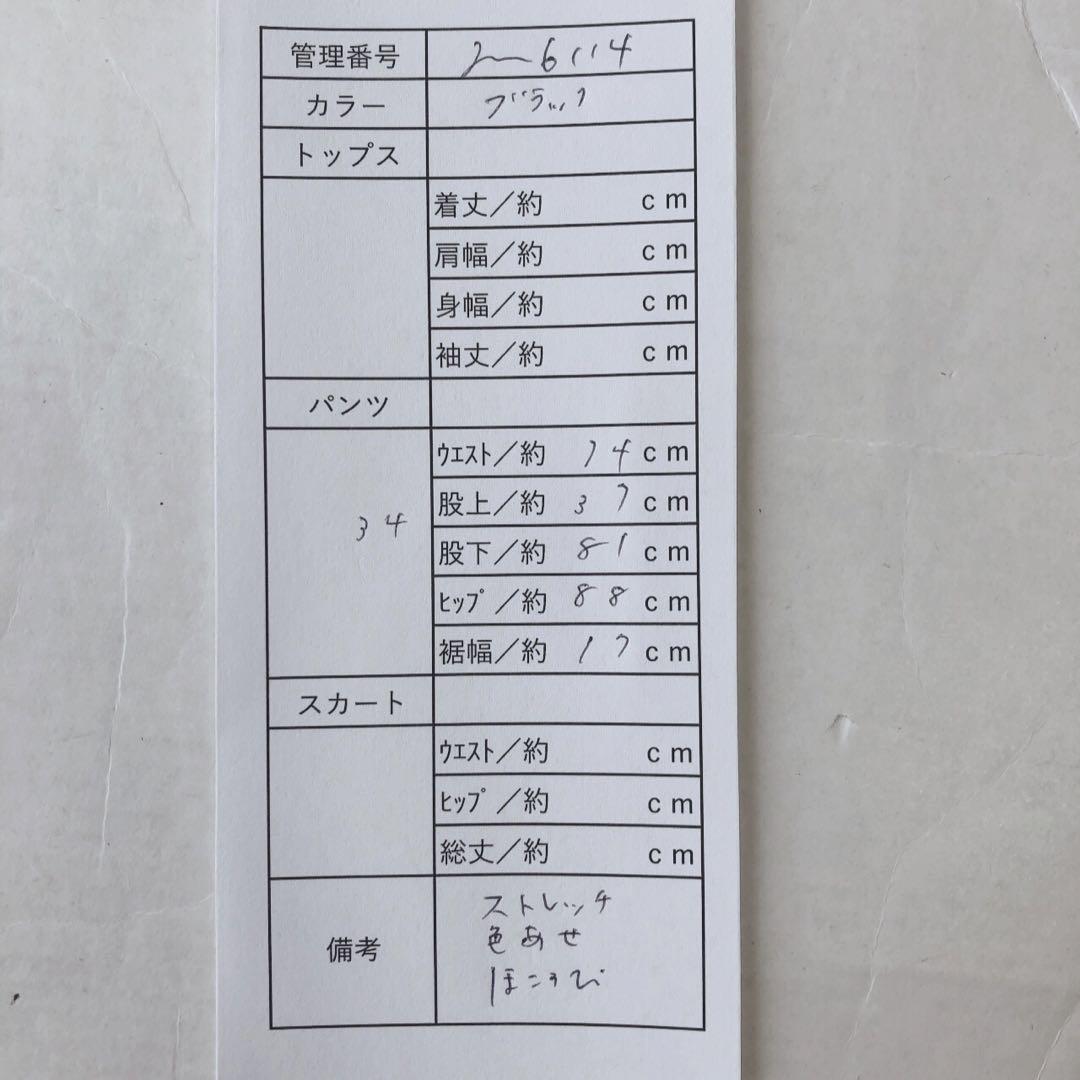 管理番号 2-6114
カラー ブラック
トップス
着丈／約 cm
肩幅／約 cm
身幅／約 cm
袖丈／約 cm
パンツ
34
ｳｴｽﾄ／約 74cm
股上／約 37cm
股下／約 81cm
ﾋｯﾌﾟ／約 88cm
裾幅／約 17cm
スカート
ｳｴｽﾄ／約 cm
ﾋｯﾌﾟ／約 cm
総丈／約 cm
備考
ストレッチ
色あせ
ほころび